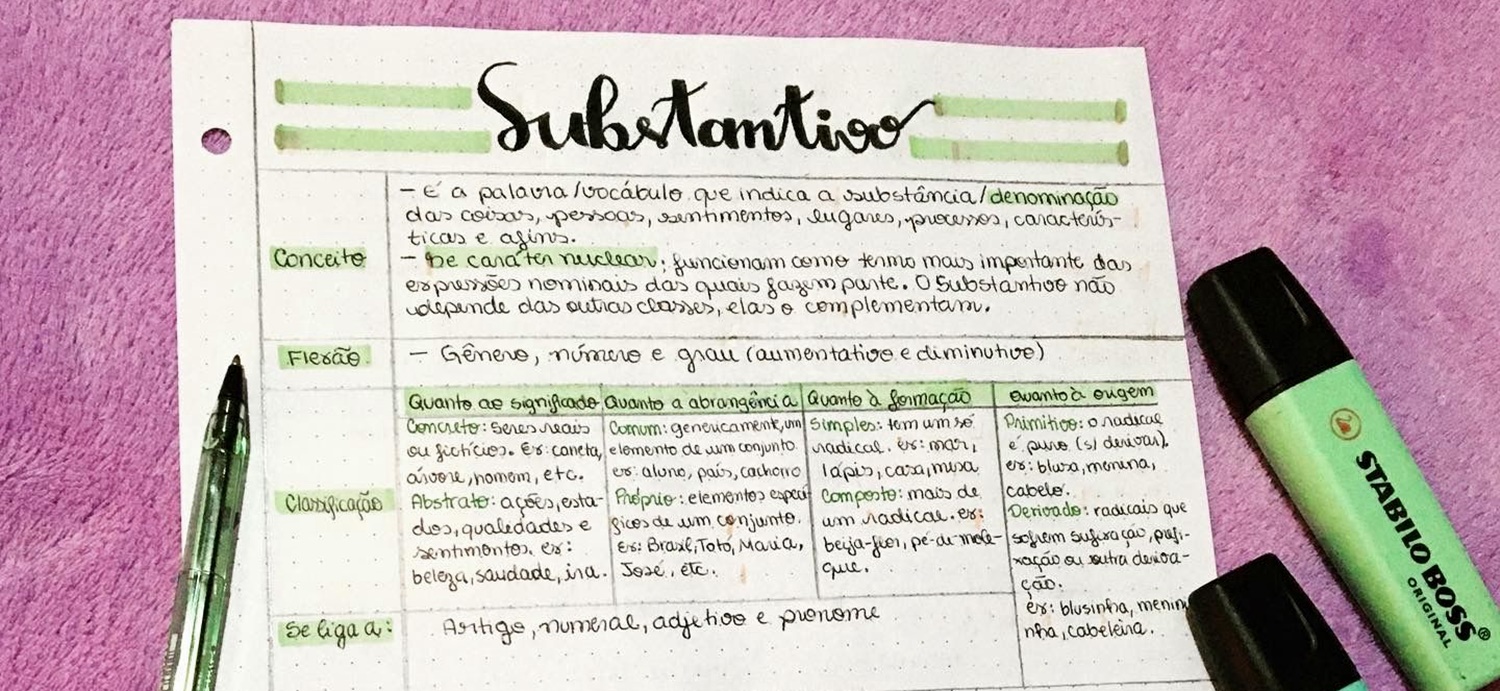 Substantivo
- É a palavra/vocábulo que indica a substância/denominação
das coisas, pessoas, sentimentos, lugares, processos, caracterís-
ticas e afins.
Conceito
- De caráter nuclear; funcionam como termo mais importante das
expressões nominais das quais fazem parte. O Substantivo não
depende das outras classes, elas o complementam.
Flexão
- Gênero, número e grau (aumentativo e diminutivo)
Classificação
Quanto ao significado
Concreto: seres reais
ou fictícios. Ex: caneta,
árvore, homem, etc.
Abstrato: ações, esta-
dos, qualidades e
sentimentos. ex:
beleza, saudade, ira.
Quanto a abrangência
Comum: genericamente, um
elemento de um conjunto.
ex: aluno, país, cachorro
Próprio: elementos especí
ficos de um conjunto.
Ex: Brasil, Totó, Maria,
José, etc.
Quanto à formação
Simples: tem um só
radical. ex: mar,
lápis, casa, mesa
Composto: mais de
um radical. ex:
beija-flor, pé-de-mole-
que.
Quanto à origem
Primitivo: o radical
é puro (s/ derivar).
ex: blusa, menina,
cabelo.
Derivado: radicais que
sofrem sufixação, prefi-
xação ou outra deriva-
ção.
ex: blusinha, menini
nha, cabeleira.
Se liga a:
Artigo, numeral, adjetivo e pronome
STABILO BOSS®
ORIGINAL